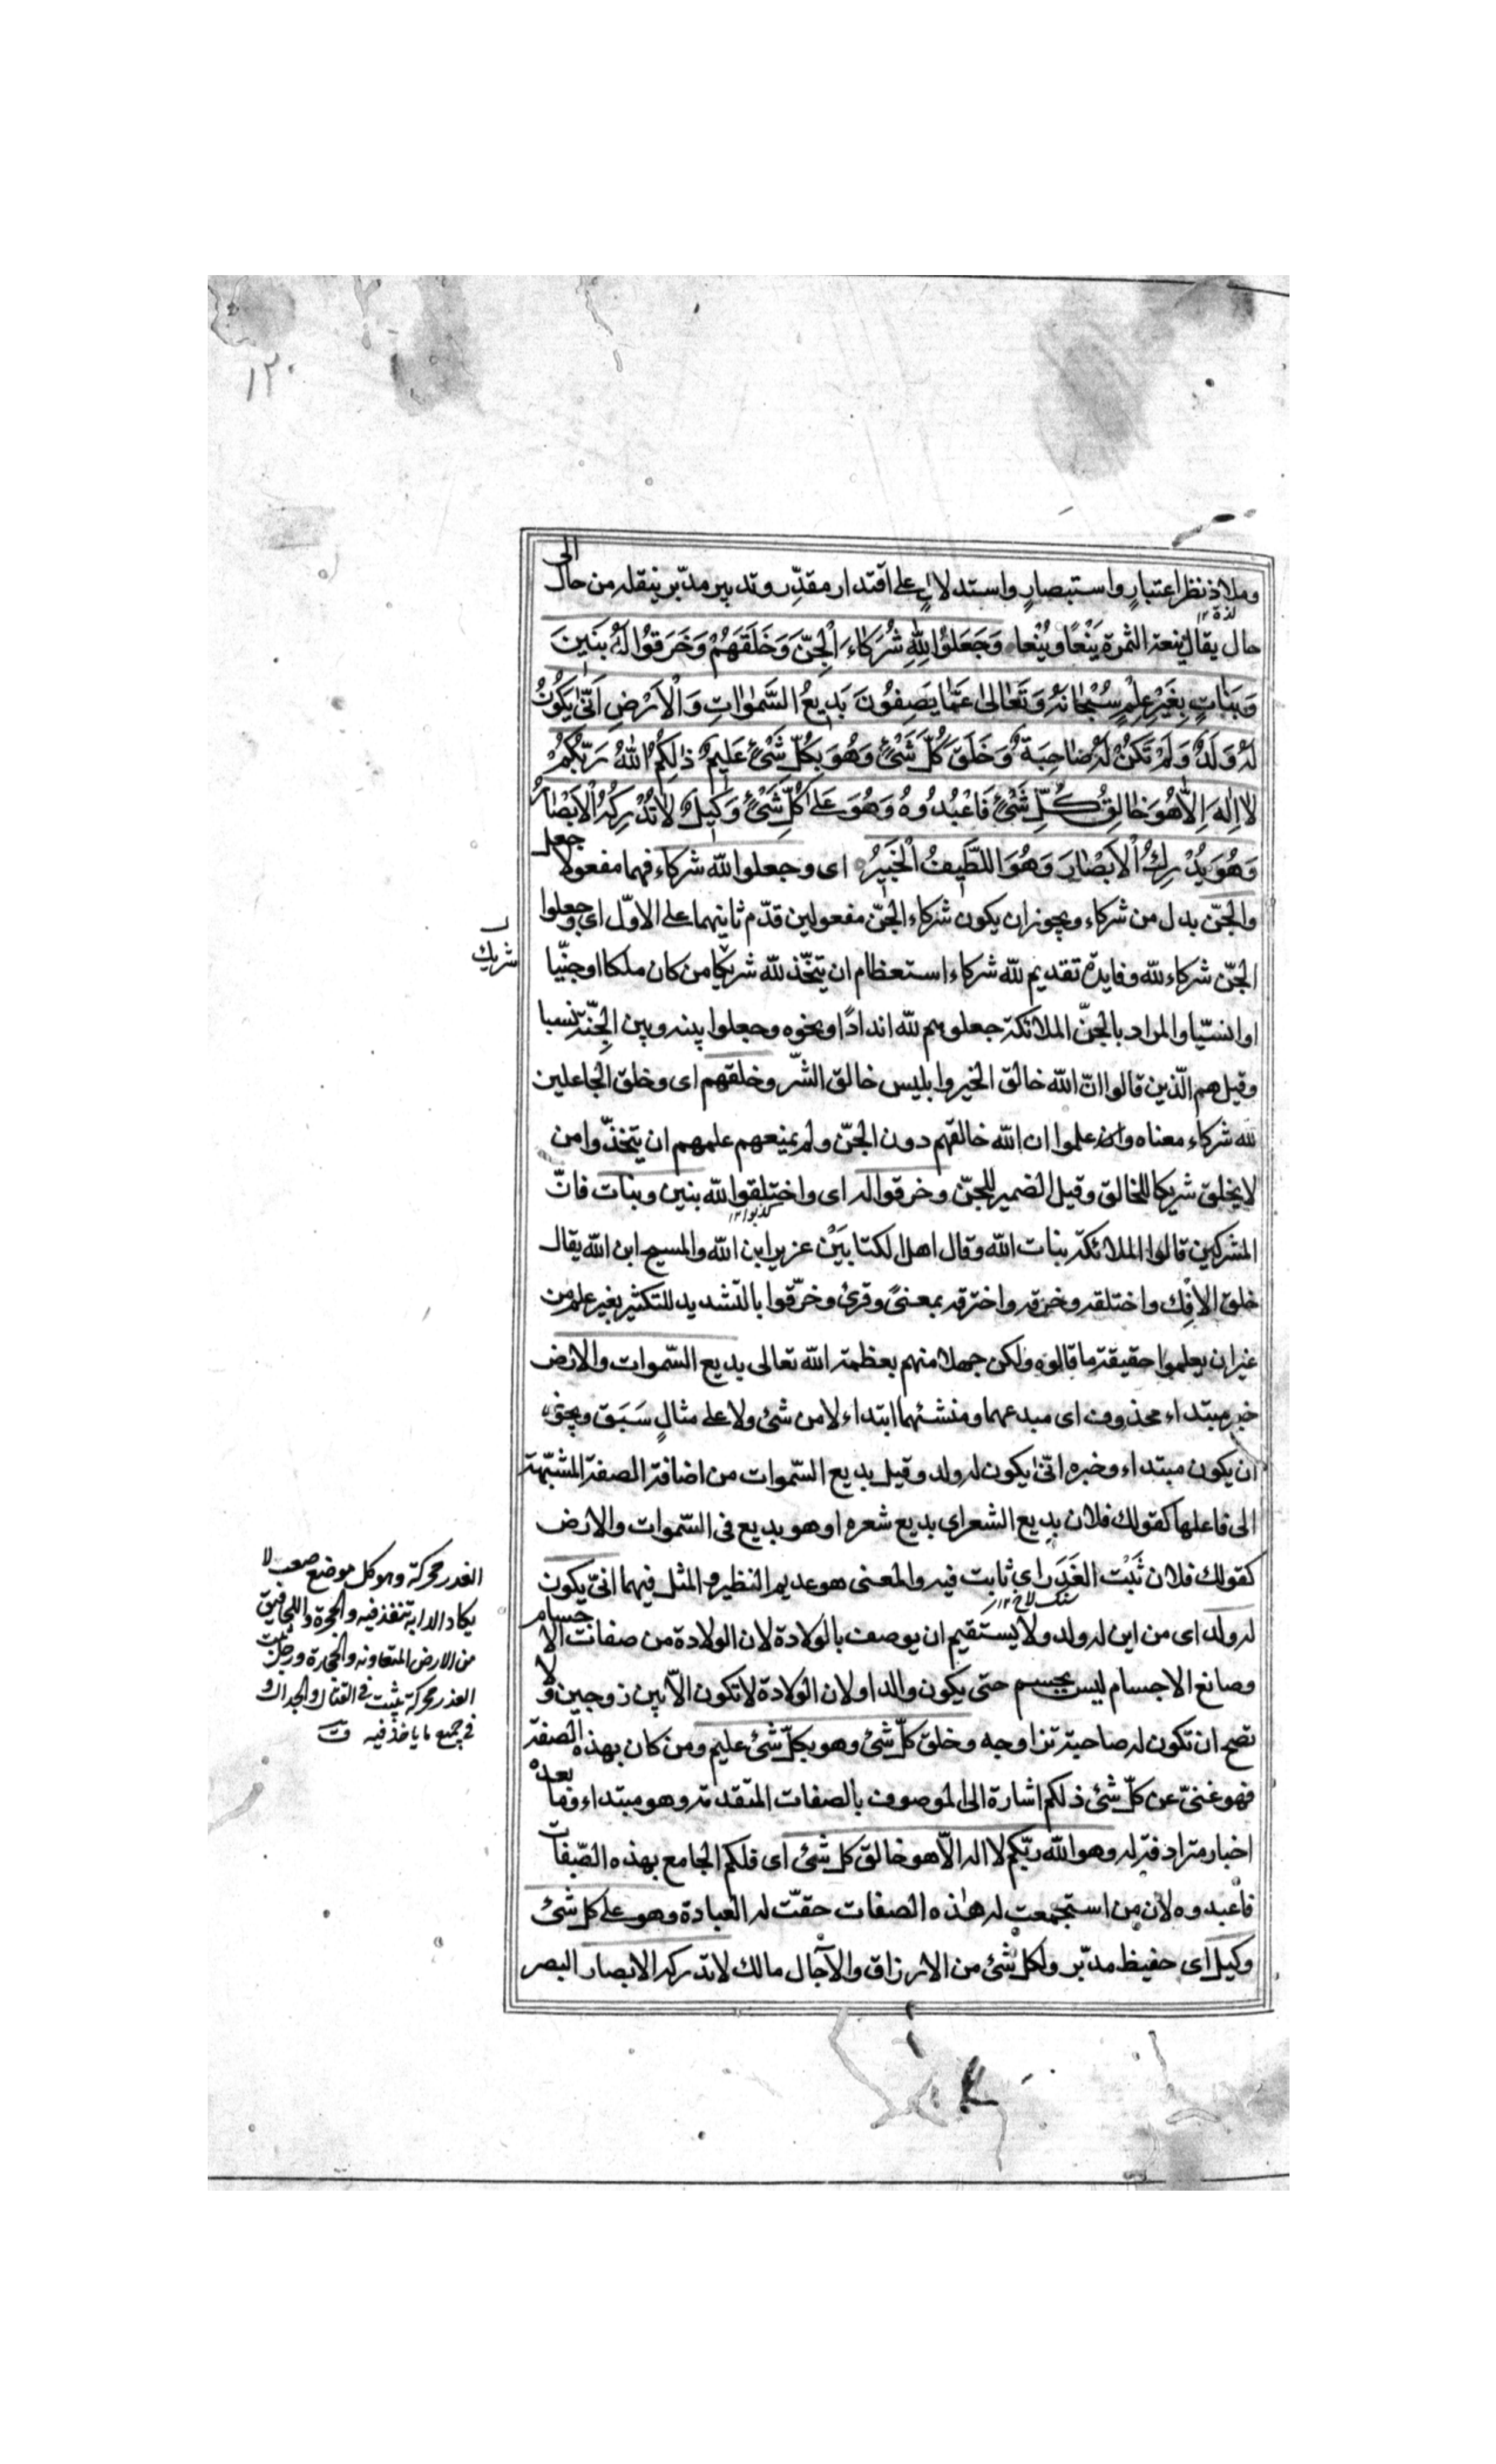 ١٢٠
وملاذ نظر اعتبارٍ واستبصارٍ واستدلالٍ على اقتدار مقدّرٍ وتدبير مدبّر ينقله من حال الى
لذة ١٢
حال يقال ينعت الثمرة يَنْعًا ويُنْعا وَجَعَلُوا لِلّٰهِ شُرَكَاءَ الْجِنَّ وَخَلَقَهُمْ وَخَرَقُوا لَهُ بَنِينَ
وَبَنَاتٍ بِغَيْرِ عِلْمٍ سُبْحَانَهُ وَتَعَالٰى عَمَّا يَصِفُونَ بَدِيعُ السَّمٰوَاتِ وَالْاَرْضِ اَنّٰى يَكُونُ
لَهُ وَلَدٌ وَلَمْ تَكُنْ لَهُ صَاحِبَةٌ وَخَلَقَ كُلَّ شَيْءٍ وَهُوَ بِكُلِّ شَيْءٍ عَلِيمٌ ذٰلِكُمُ اللّٰهُ رَبُّكُمْ
لَا اِلٰهَ اِلَّا هُوَ خَالِقُ كُلِّ شَيْءٍ فَاعْبُدُوهُ وَهُوَ عَلٰى كُلِّ شَيْءٍ وَكِيلٌ لَا تُدْرِكُهُ الْاَبْصَارُ
وَهُوَ يُدْرِكُ الْاَبْصَارَ وَهُوَ اللَّطِيفُ الْخَبِيرُ اى وجعلوا لله شركاء فهما مفعولا جعل
والجنّ بدل من شركاء ويجوز ان يكون شركاء الجنّ مفعولين قدّم ثانيهما على الاوّل اى وجعلوا
الجنّ شركاء لله وفايدة تقديم لله شركاء استعظام ان يتّخذ لله شريكا من كان ملكا او جنّيا
شريك
او انسيّا والمراد بالجنّ الملائكة جعلوهم لله اندادًا ونحوه وجعلوا بينه وبين الجِنّة نسبا
وقيل هم الّذين قالوا انّ الله خالق الخير وابليس خالق الشّر وخلقهم اى وخلق الجاعلين
لله شركاء معناه وان علموا ان الله خالقهم دون الجنّ ولم يمنعهم علمهم ان يتخذّوا من
لا يخلق شريكا للخالق وقيل الضمير للجنّ وخرقوا له اى واختلقوا لله بنين وبنات فانّ
كذبوا ١٢
المشركين قالوا الملائكة بنات الله وقال اهل الكتابَيْن عزير ابن الله والمسيح ابن الله يقال
خلق الافك واختلقه وخرقه واخترقه بمعنىً وقرئ وخرّقوا بالتشديد للتكثير بغير علم من
غير ان يعلموا حقيقة ما قالوه ولكن جهلا منهم بعظمة الله تعالى بديع السّموات والارض
خبر مبتداء محذوف اى مبدعهما ومنشئهما ابتداء لا من شئ ولا على مثالٍ سَبَق ويجوز
ان يكون مبتداء وخبره انّى يكون له ولد وقيل بديع السّموات من اضافة الصفة المشبّهة
الى فاعلها كقولك فلان بديع الشعر اى بديع شعره او هو بديع فى السّموات والارض
كقولك فلان ثَبْت الغَدَر اى ثابت فيه والمعنى هو عديم النظير والمثل فيهما انّى يكون
سنگ لاخ ١٢
له ولد اى من اين له ولد ولا يستقيم ان يوصف بالولادة لان الولادة من صفات الاجسام
وصانع الاجسام ليس بجسم حتى يكون والدا ولان الولادة لا تكون الّا بين زوجين ولا
تصح ان تكون له صاحبة تزاوجه وخلق كلّ شئ وهو بكلّ شئ عليم ومن كان بهذه الصفة
فهو غنىّ عن كلّ شئ ذلكم اشارة الى الموصوف بالصفات المتقدمة وهو مبتداء وما بعده
اخبار مترادفة له وهو الله ربّكم لا اله الّا هو خالق كل شئ اى فلكم الجامع بهذه الصّفات
فاعبدوه لان من استجمعت له هٰذه الصفات حقّت له العبادة وهو على كل شئ
وكيل اى حفيظ مدبّر ولكل شئ من الارزاق والآجال مالك لا تدركه الابصار البصر
الغدر محركة وهو كل موضع صعب لا
يكاد الدابة تنفذ فيه والجحرة واللخافيق
من الارض المتعاونه والحجارة ورجل ثبت
الغدر محركة يثبت فى القتال والجدال و
فى جميع ما ياخذ فيه ق